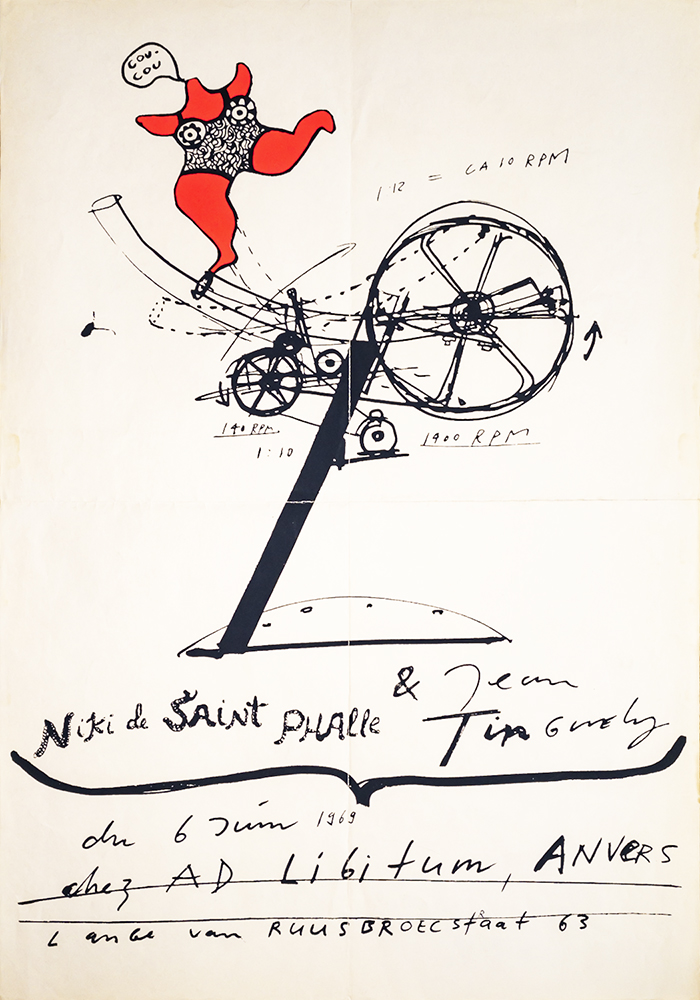 COU-
COU
1:12 = CA 10 RPM
140 RPM
1:10
1400 RPM
Niki de SAINT PHALLE & Jean Tinguely
du 6 Juin 1969
chez AD Libitum, ANVERS
Lange van RUUSBROECstraat 63